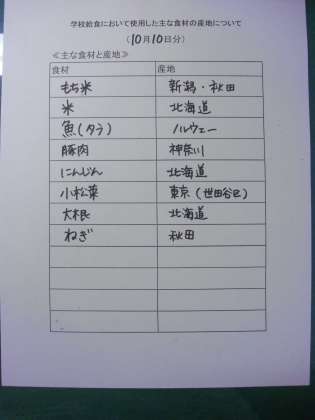 学校給食において使用した主な食材の産地について
(10月10日分)
≪主な食材と産地≫
食材 産地
もち米 新潟・秋田
米 北海道
魚(タラ) ノルウェー
豚肉 神奈川
にんじん 北海道
小松菜 東京(世田谷区)
大根 北海道
ねぎ 秋田